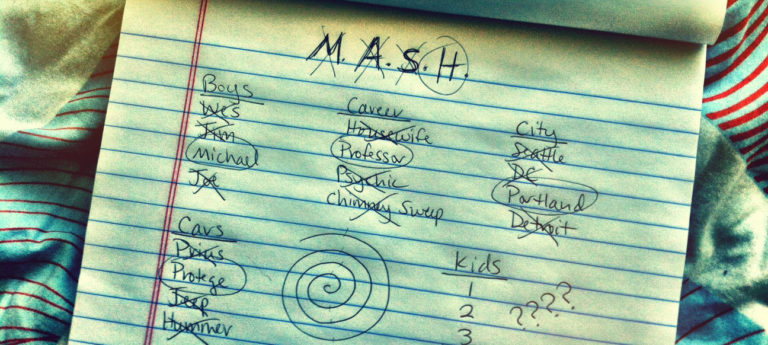 M.A.S.H.
Boys
Wes
Jim
Michael
Joe
Career
Housewife
Professor
Psychic
Chimney Sweep
City
Seattle
DC
Portland
Detroit
Cars
Prius
Protege
Jeep
Hummer
Kids
1
2
3
????